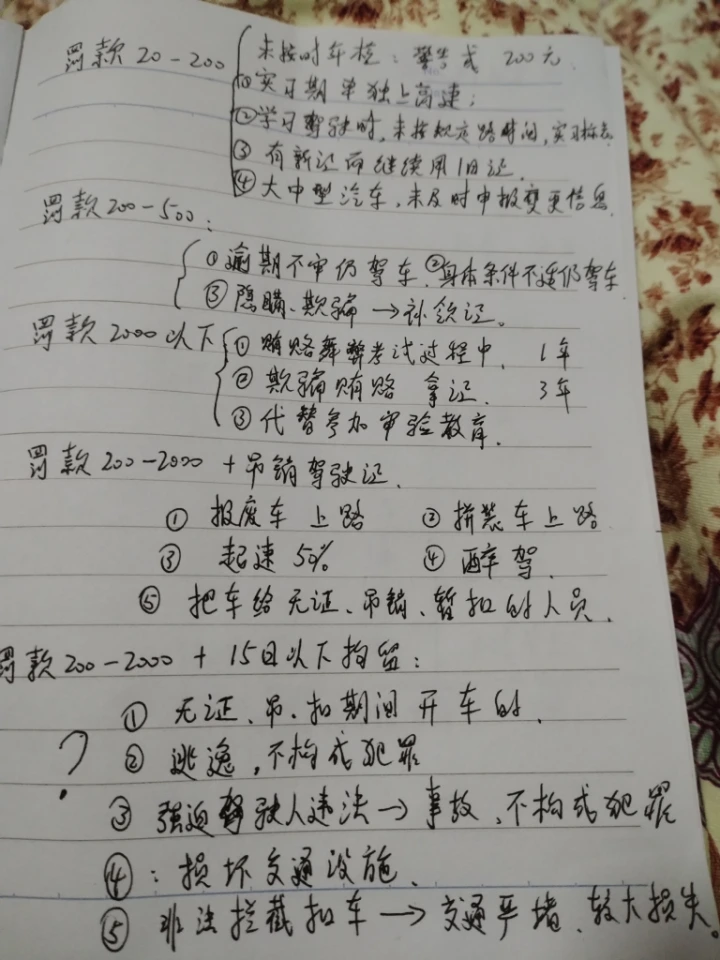 罚款20-200
未按时年检：警告或 200元
①实习期单独上高速；
②学习驾驶时，未按规定路时间，实习标志
③ 有新证而继续用旧证.
④ 大中型汽车，未及时申报变更信息
罚款200-500：
①逾期不审仍驾车.②身体条件不适仍驾车
③ 隐瞒、欺骗 →补领证。
罚款2000以下
① 贿赂舞弊考试过程中. 1年
② 欺骗贿赂 拿证. 3年
③ 代替参加审验教育.
罚款200-2000 +吊销驾驶证.
① 报废车上路 ② 拼装车上路
③ 起速50% ④ 醉驾.
⑤ 把车给无证、吊销、暂扣的人员.
罚款200-2000 + 15日以下拘留：
① 无证、吊、扣期间开车的.
? ② 逃逸，不构成犯罪
③ 强迫驾驶人违法→事故，不构成犯罪
④：损坏交通设施.
⑤ 非法拦截扣车→交通严堵、较大损失。